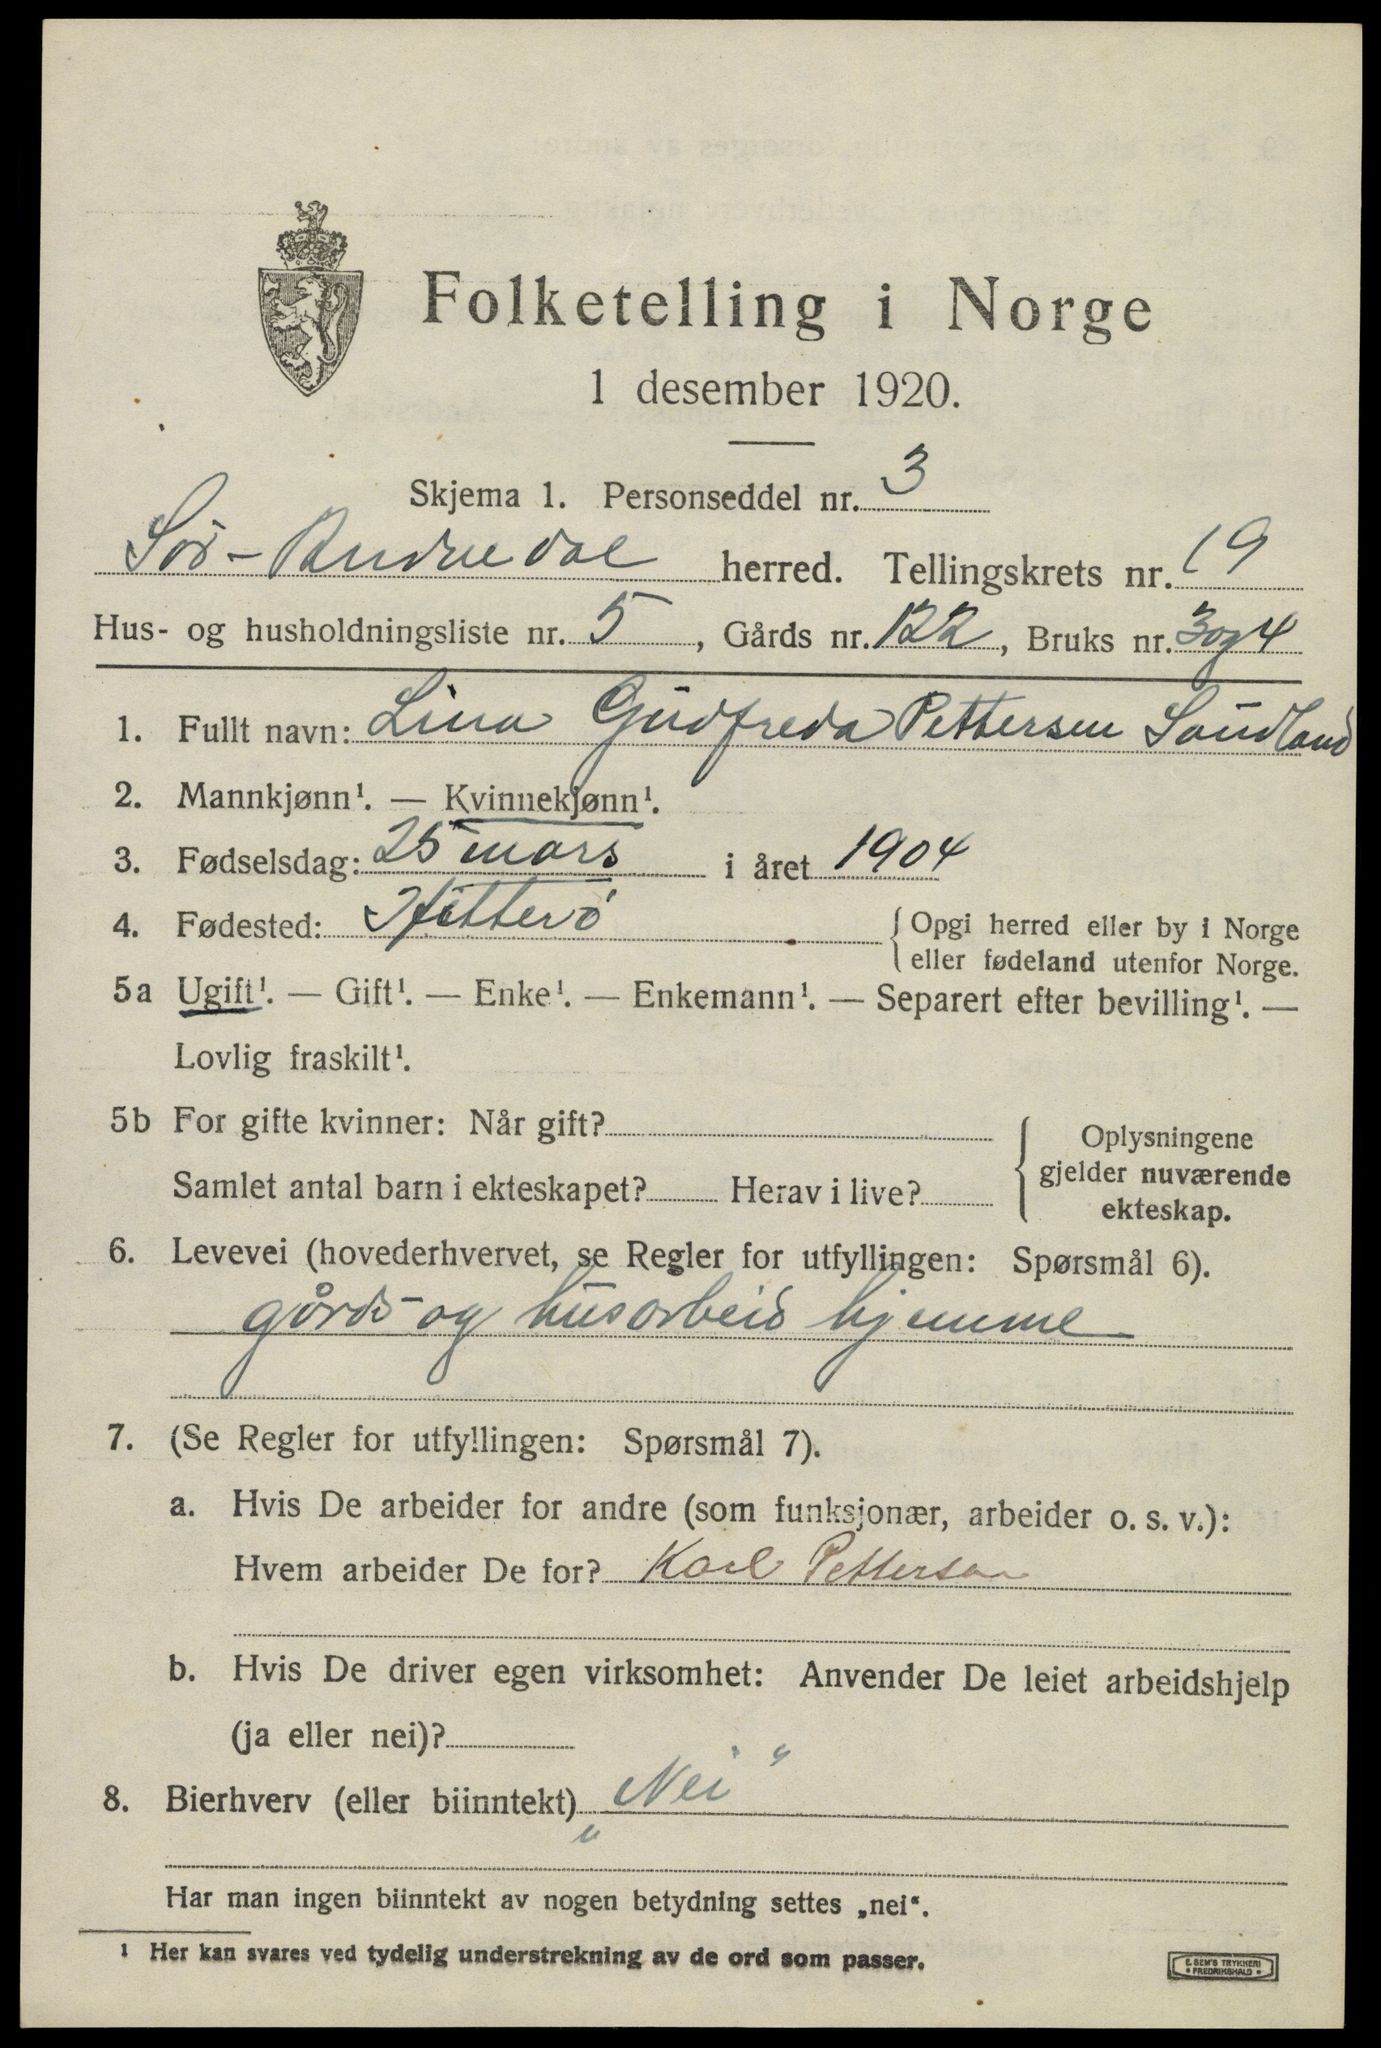 Folketelling i Norge
1 desember 1920.
Skjema 1. Personseddel nr. 3
Sør-Audnedal herred. Tellingskrets nr. 19
Hus- og husholdningsliste nr. 5, Gårds nr. 122, Bruks nr. 3 og 4
1. Fullt navn: Lina Gudfreda Pettersen Sandland
2. Mannkjønn¹. — Kvinnekjønn¹.
3. Fødselsdag: 25 mars i året 1904
4. Fødested: Hitterö { Opgi herred eller by i Norge
eller fødeland utenfor Norge.
5a Ugift¹. — Gift¹. — Enke¹. — Enkemann¹. — Separert efter bevilling¹. —
Lovlig fraskilt¹.
5b For gifte kvinner: Når gift?
Samlet antal barn i ekteskapet? Herav i live?
{ Oplysningene
gjelder nuværende
ekteskap.
6. Levevei (hovederhvervet, se Regler for utfyllingen: Spørsmål 6).
gårds- og husarbeid hjemme
7. (Se Regler for utfyllingen: Spørsmål 7).
a. Hvis De arbeider for andre (som funksjonær, arbeider o. s. v.):
Hvem arbeider De for? Karl Pettersen
b. Hvis De driver egen virksomhet: Anvender De leiet arbeidshjelp
(ja eller nei)?
8. Bierhverv (eller biinntekt) „Nei“
Har man ingen biinntekt av nogen betydning settes „nei“.
¹ Her kan svares ved tydelig understrekning av de ord som passer.
E. SEM'S TRYKKERI
• FREDRIKSHALD •